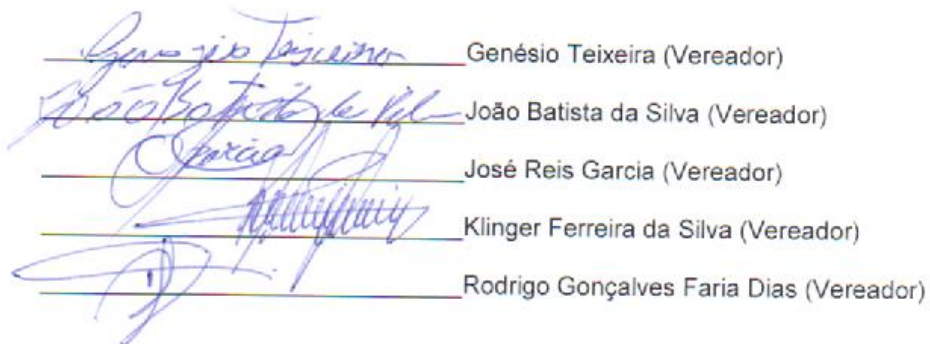 Genésio Teixeira Genésio Teixeira (Vereador)
João Batista da Silva João Batista da Silva (Vereador)
Garcia José Reis Garcia (Vereador)
Klinger Ferreira da Silva (Vereador)
Rodrigo Gonçalves Faria Dias (Vereador)